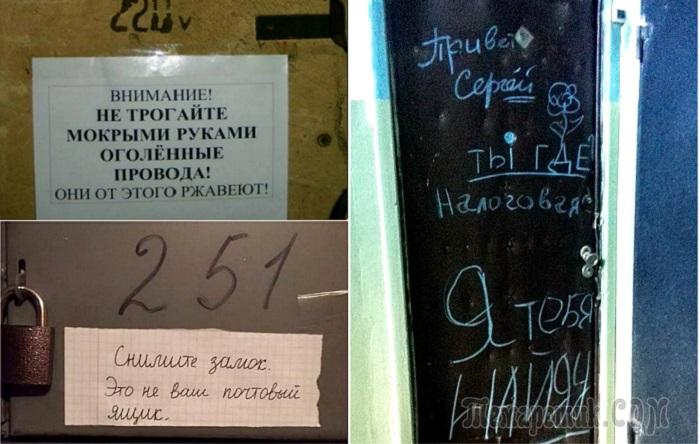 220v
ВНИМАНИЕ!
НЕ ТРОГАЙТЕ
МОКРЫМИ РУКАМИ
ОГОЛЁННЫЕ
ПРОВОДА!
ОНИ ОТ ЭТОГО РЖАВЕЮТ!
251
Снимите замок.
Это не ваш почтовый
ящик.
Привет
Сергей
ты ГДЕ?
Налоговая
Я тебя
НАЙДУ